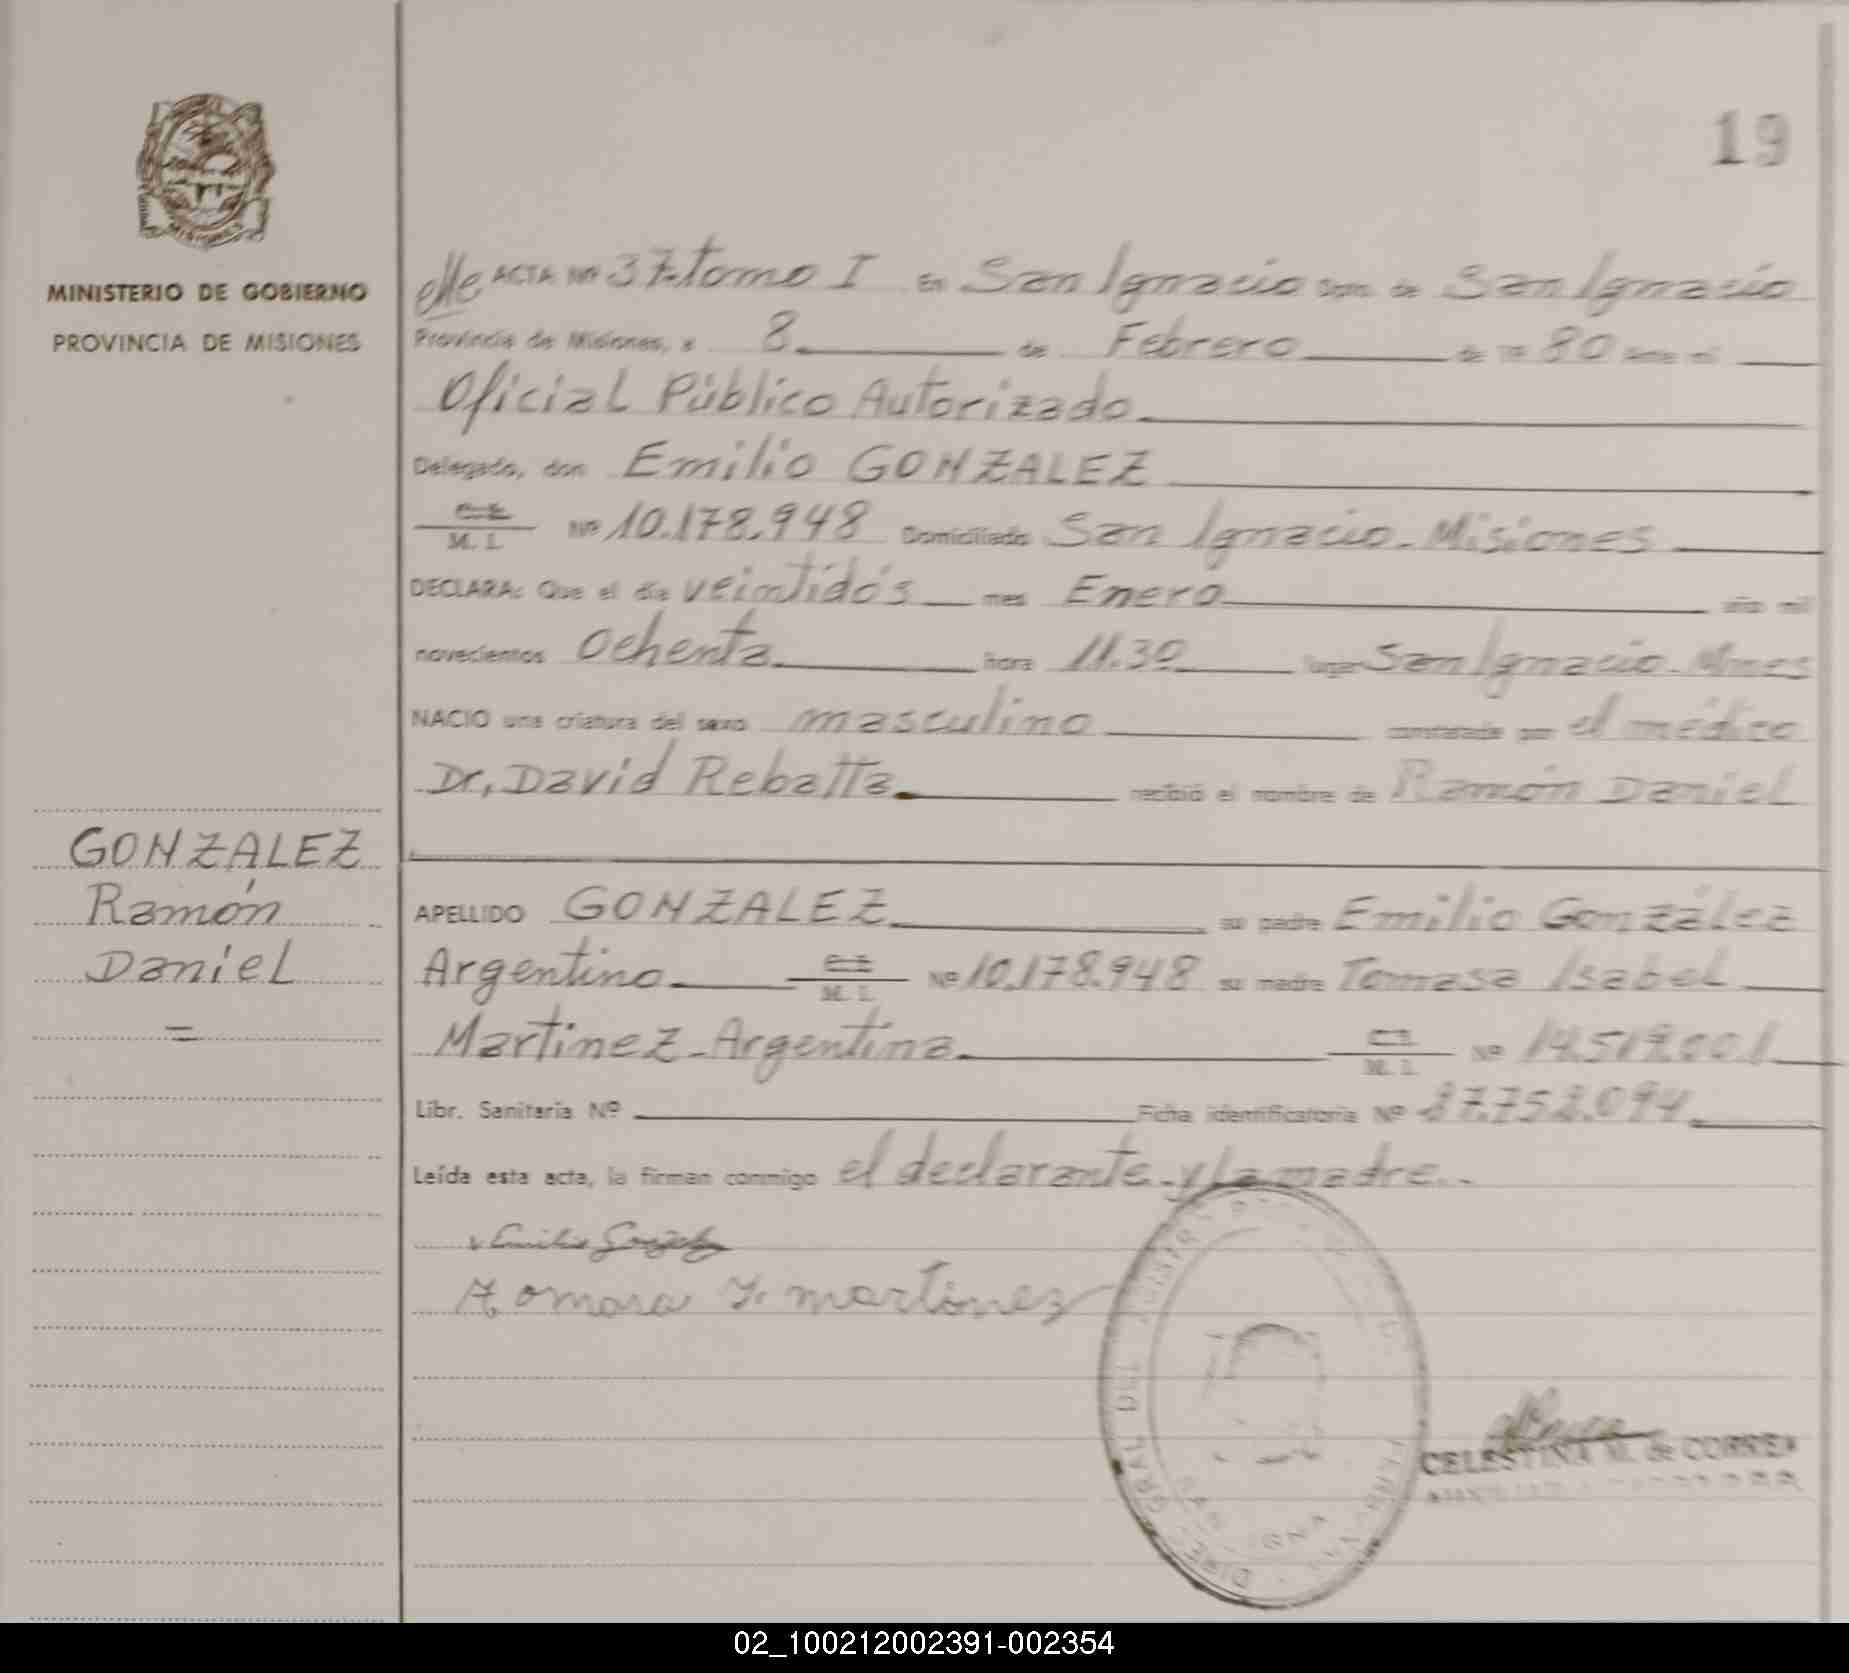 19
MINISTERIO DE GOBIERNO
PROVINCIA DE MISIONES
GONZALEZ
Ramón
Daniel
=
ACTA Nº 37-tomo I En San Ignacio Dpto. de San Ignacio
Provincia de Misiones, a 8 de Febrero de 19 80 ante mi
Oficial Público Autorizado
Delegado, don Emilio GONZALEZ
C.I. M. I. Nº 10.178.948 Domiciliado San Ignacio - Misiones
DECLARA: Que el día veintidós mes Enero año mil
novecientos Ochenta hora 11.30 lugar San Ignacio - Mnes
NACIO una criatura del sexo masculino constatado por el médico
Dr, David Rebatta recibió el nombre de Ramón Daniel
APELLIDO GONZALEZ su padre Emilio González
Argentino C.I. M. I. Nº 10.178.948 su madre Tomasa Isabel
Martinez - Argentina C.I. M. I. Nº 14.519.001
Libr. Sanitaria Nº Ficha identificatoria Nº 27.752.094
Leída esta acta, la firman conmigo el declarante - y la madre.-
Emilio González
Tomasa Y. martinez
CELESTINA M. de CORREA
02_100212002391-002354